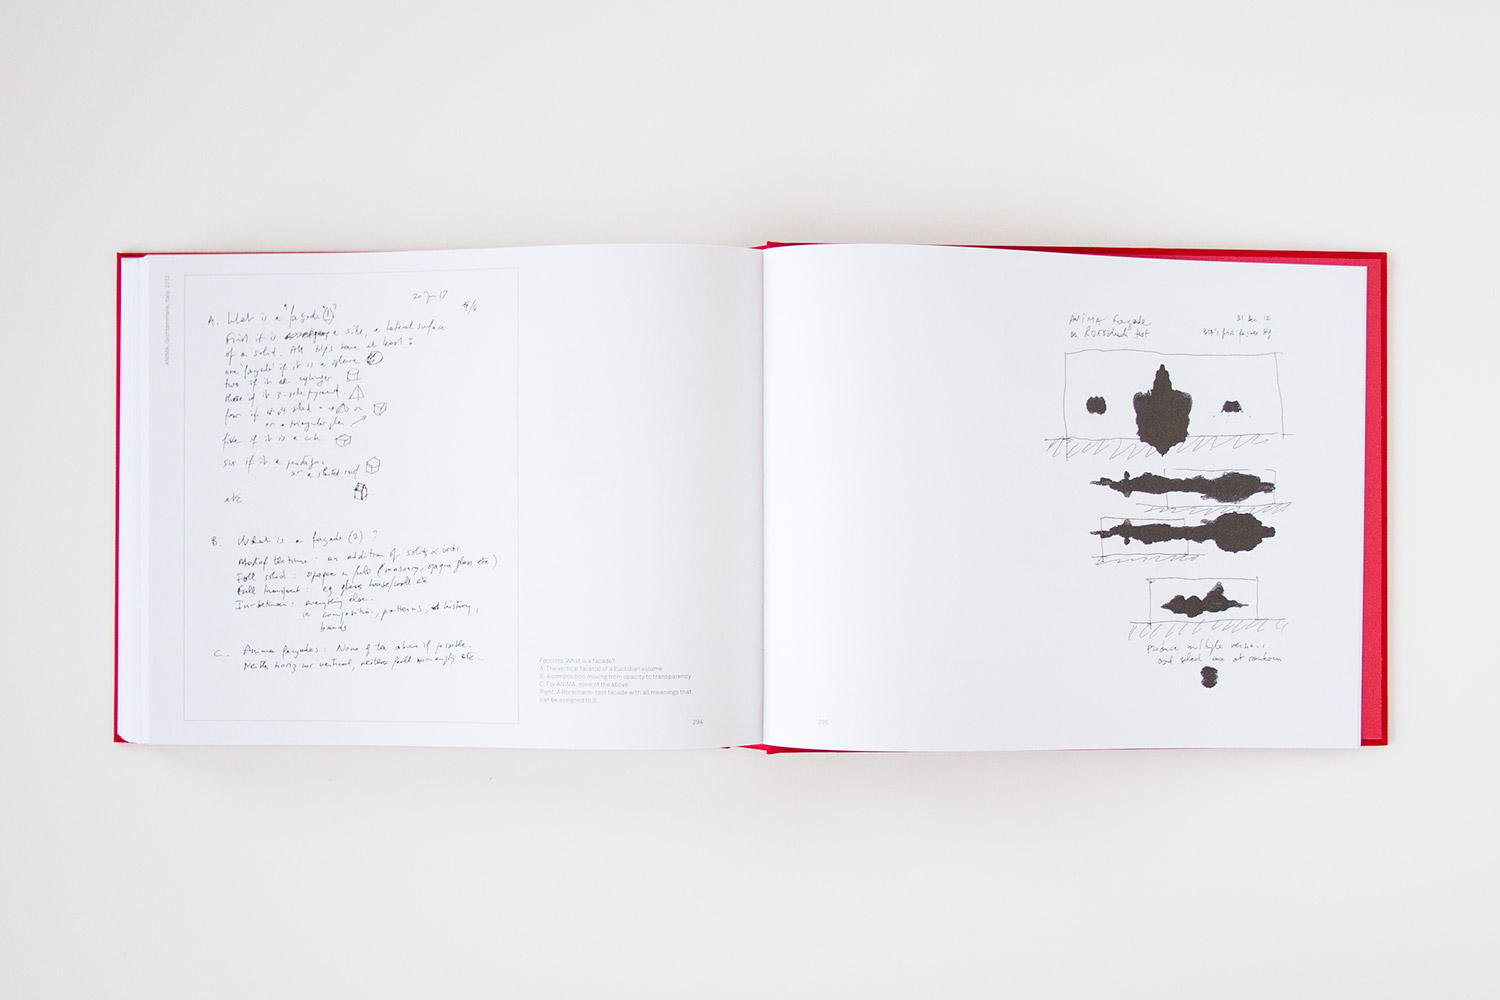 ANIMA, Grottammare, Italy, 2012
4/6
A. What is a "façade"(1)?
First it is a side, a lateral surface
of a solid. All blgs have at least:
one 'façade' if it is a sphere
two if it is a cylinder
three if it 3-side pyramid
four if 4 sided or
or a triangular plan
five if it is a cube
six if it a pentagon
or a slanted roof
etc
B. What is a façade (2) ?
Most of the time: an addition of solids & voids
Full solid: opaque in full (masonry, opaque glass etc)
Full transparent: eg glass house/wall etc
In-between: everything else.
ie composition, patterns, history,
bands
C. Anima façades: None of the above if possible.
Neither horiz nor vertical, neither full nor empty etc.
Facciata. What is a facade?
A. The vertical facet(s) of a Euclidian volume
B. A composition moving from opacity to transparency
C. For ANIMA, none of the above.
Right: A Rorschach-test facade with all meanings that
can be assigned to it...
294
295
ANIMA façade
Rorschach test
31 Dec 12
BTA's first façade
Produce multiple versions
and select one at random